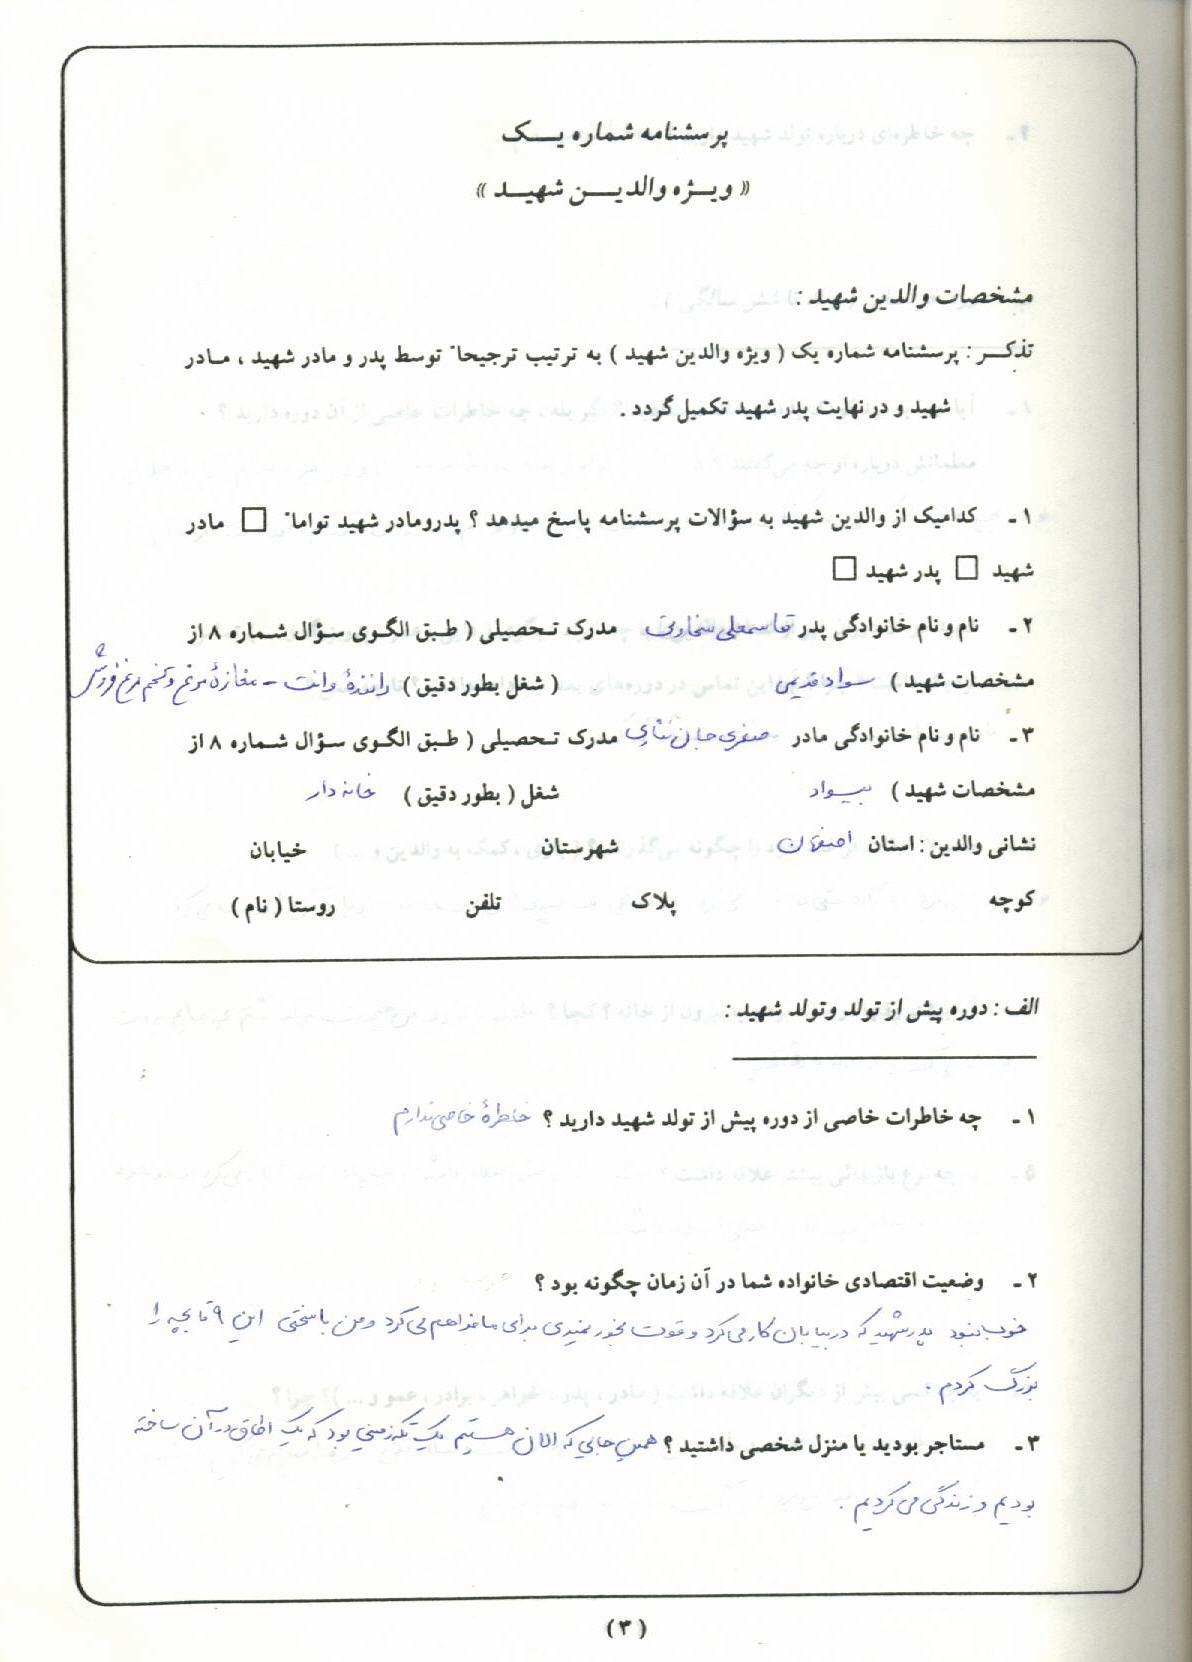 پرسشنامه شماره یک
« ویژه والدین شهید »
مشخصات والدین شهید :
تذکر : پرسشنامه شماره یک ( ویژه والدین شهید ) به ترتیب ترجیحاً توسط پدر و مادر شهید ، مادر
شهید و در نهایت پدر شهید تکمیل گردد .
۱ ـ کدامیک از والدین شهید به سؤالات پرسشنامه پاسخ میدهد ؟ پدرومادر شهید تواماً □ مادر
شهید □ پدر شهید □
۲ ـ نام و نام خانوادگی پدر قاسمعلی مدرک تحصیلی ( طبق الگوی سؤال شماره ۸ از
مشخصات شهید ) سواد قدیمی ( شغل بطور دقیق ) رانندهٔ وانت - مغازهٔ مرغ و تخم مرغ فروشی
۳ ـ نام و نام خانوادگی مادر صغری جان نثاری مدرک تحصیلی ( طبق الگوی سؤال شماره ۸ از
مشخصات شهید ) بیسواد شغل ( بطور دقیق ) خانه دار
نشانی والدین : استان اصفهان شهرستان خیابان
کوچه پلاک تلفن روستا ( نام )
الف : دوره پیش از تولد وتولد شهید :
۱ ـ چه خاطرات خاصی از دوره پیش از تولد شهید دارید ؟ خاطرهٔ خاصی ندارم
۲ ـ وضعیت اقتصادی خانواده شما در آن زمان چگونه بود ؟
خوب نبود پدر شهید که در بیابان کار می کرد و قوت بخور نمیری برای ما فراهم می کرد و من با سختی این ۹ تا بچه را
بزرگ کردم .
۳ ـ مستاجر بودید یا منزل شخصی داشتید ؟ همین جایی که الان هستیم یک تکه زمینی بود که یک اطاق در آن ساخته
بودیم و زندگی می کردیم .
(۳)